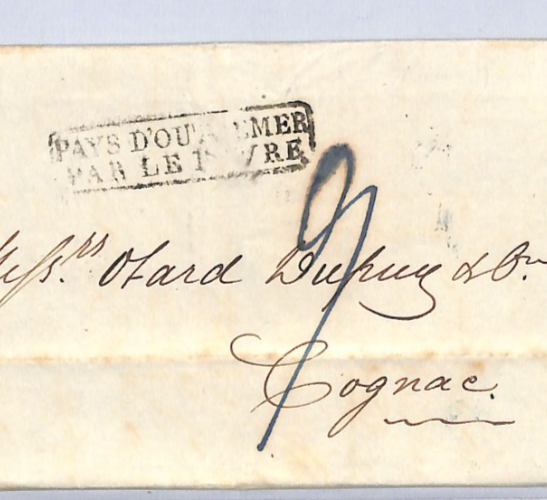 PAYS D'OUTREMER
PAR LE HAVRE
9
Mess.rs Otard Dupuy & Co.
Cognac.